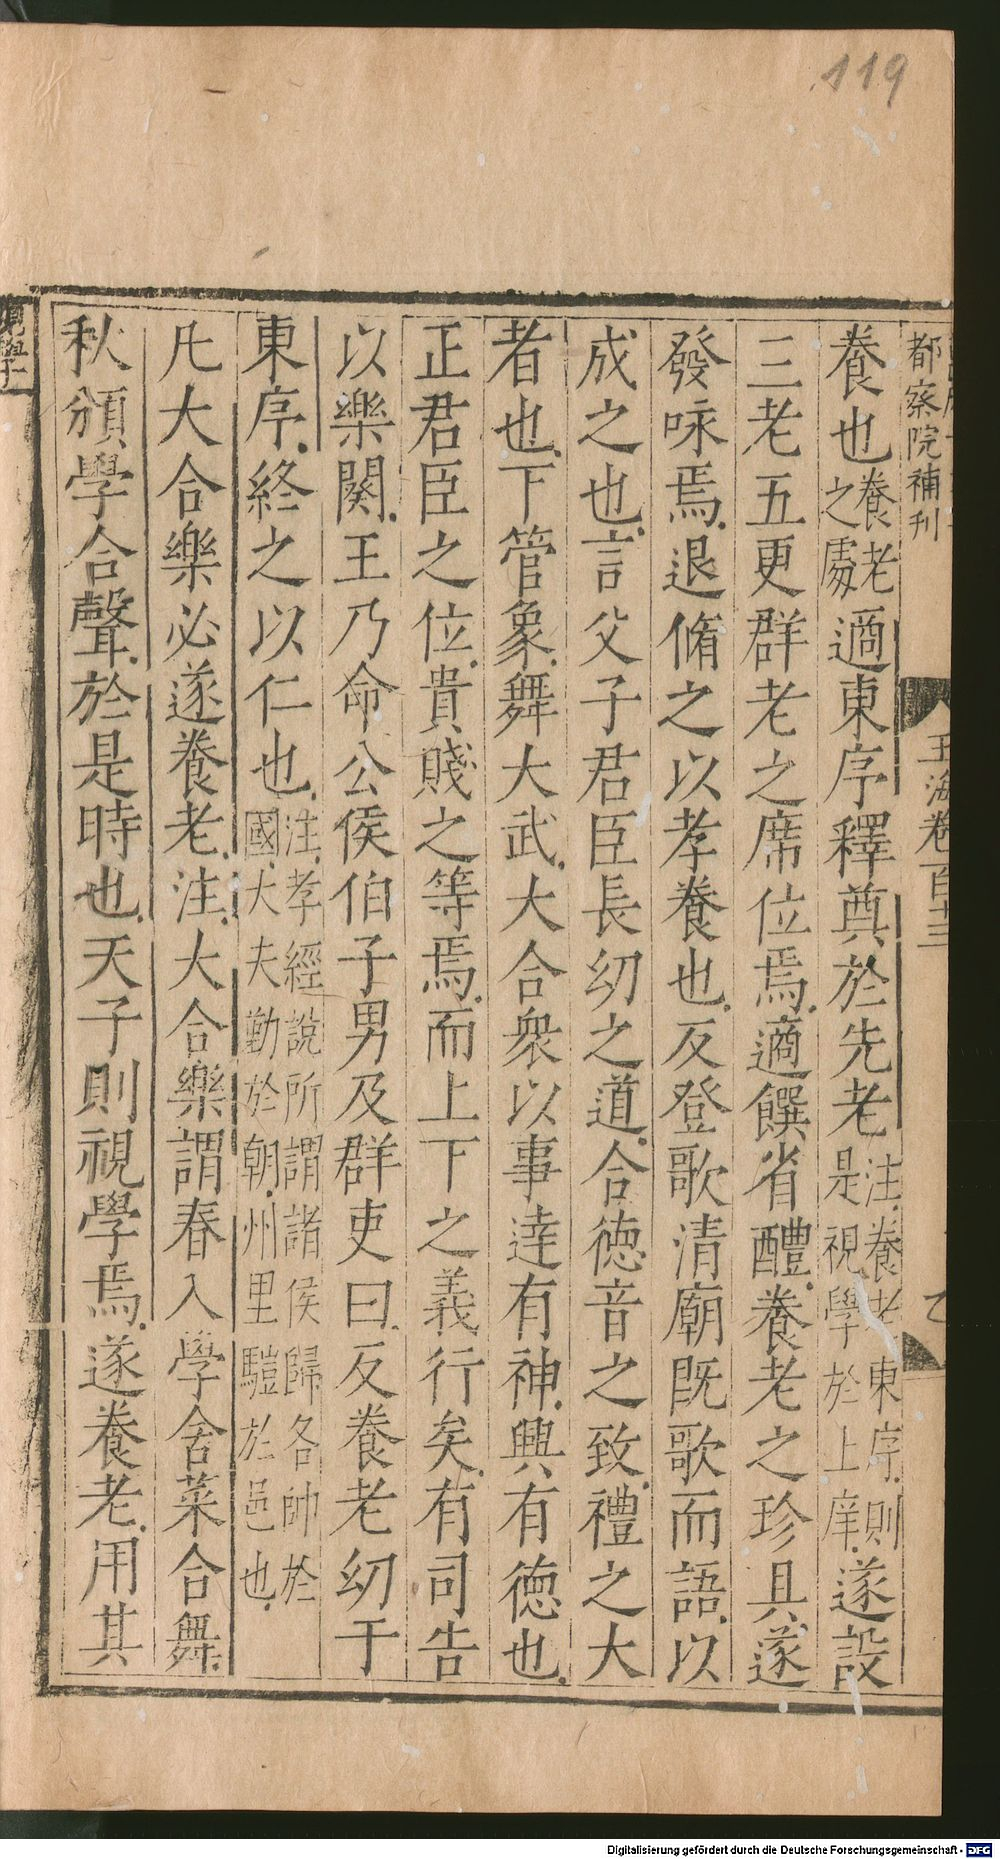 119
都察院補刊
玉海卷百十三
乙
養也養老之處適東序釋奠於先老注養老東序則是視學於上庠遂設
三老五更群老之席位焉適饌省醴養老之珍具遂
發咏焉退脩之以孝養也反登歌清廟既歌而語以
成之也言父子君臣長幼之道合德音之致禮之大
者也下管象舞大武大合衆以事達有神興有德也
正君臣之位貴賤之等焉而上下之義行矣有司告
以樂闋王乃命公侯伯子男及群吏曰反養老幼于
東序終之以仁也注孝經說所謂諸侯歸各帥於國大夫勤於朝州里驩於邑也
凡大合樂必遂養老注大合樂謂春入學舍菜合舞
秋頒學合聲於是時也天子則視學焉遂養老用其
視學
Digitalisierung gefördert durch die Deutsche Forschungsgemeinschaft - DFG